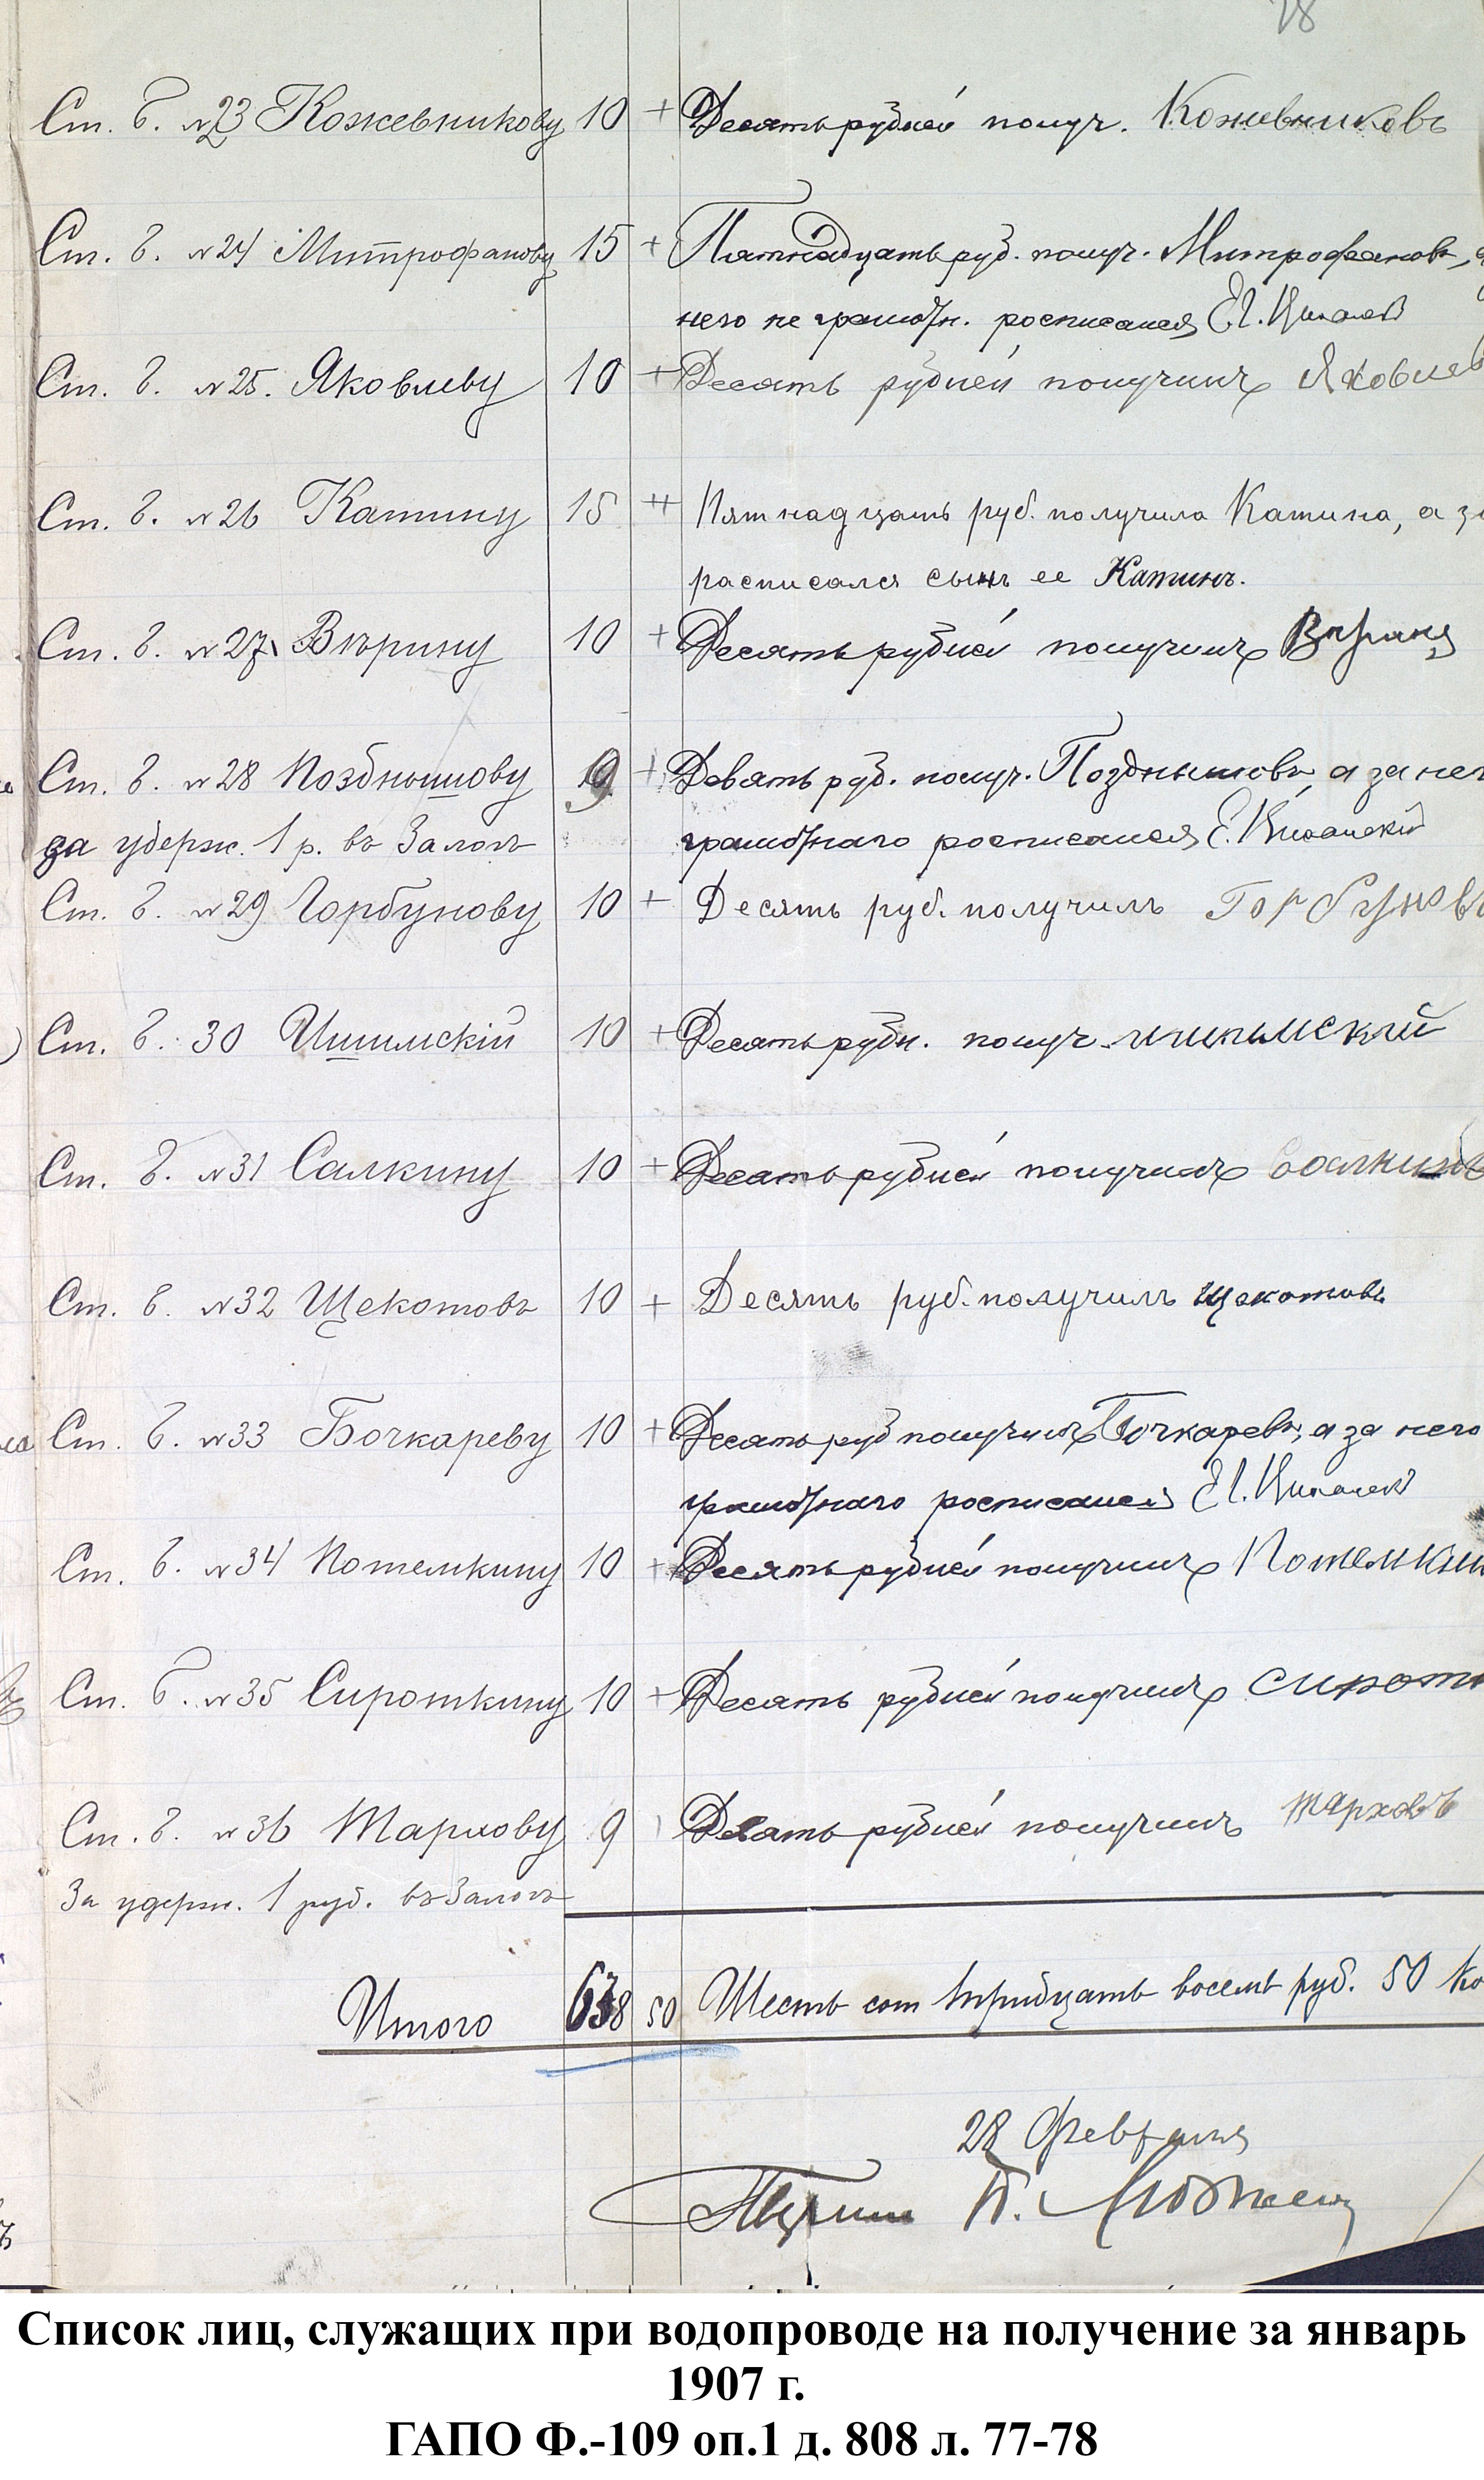 78
Ст. б. №23 Кожевникову 10 + Десять рублей получ. Кожевниковъ
Ст. б. №24 Митрофанову 15 + Пятнадцать руб. получ. Митрофановъ,
него не грамотн. росписался
Ст. б. №25. Яковлеву 10 + Десять рублей получилъ Яковлев
Ст. б. №26 Катину 15 + Пятнадцать руб. получила Катина, а за
расписался сынъ ее Катинъ.
Ст. б. №27 Вѣрину 10 + Десять рублей получилъ Вѣринъ
Ст. б. №28 Позднышову 9 + Девять руб. получ. Позднышовъ, а за него
за удерж. 1 р. въ Залогъ грамотнаго росписался
Ст. б. №29 Горбунову 10 + Десять руб. получилъ Горбуновъ
Ст. б. 30 Ишимскій 10 + Десять рубл. получ. Ишимский
Ст. б. №31 Салкину 10 + Десять рублей получилъ Салкинъ
Ст. б. №32 Щекотовъ 10 + Десять руб. получилъ Щекотовъ
Ст. б. №33 Бочкареву 10 + Десять руб получилъ Бочкаревъ, а за него
грамотнаго росписался
Ст. б. №34 Потемкину 10 + Десять рублей получилъ Потемкин
Ст. б. №35 Сироткину 10 + Десять рублей получилъ Сиротк
Ст. б. №36 Тархову 9 Девять рублей получилъ Тарховъ
За удерж. 1 руб. въ Залогъ
Итого 638 50 Шесть сот тридцать восемь руб. 50 ко
28 Февраля
Список лиц, служащих при водопроводе на получение за январь
1907 г.
ГАПО Ф.-109 оп.1 д. 808 л. 77-78